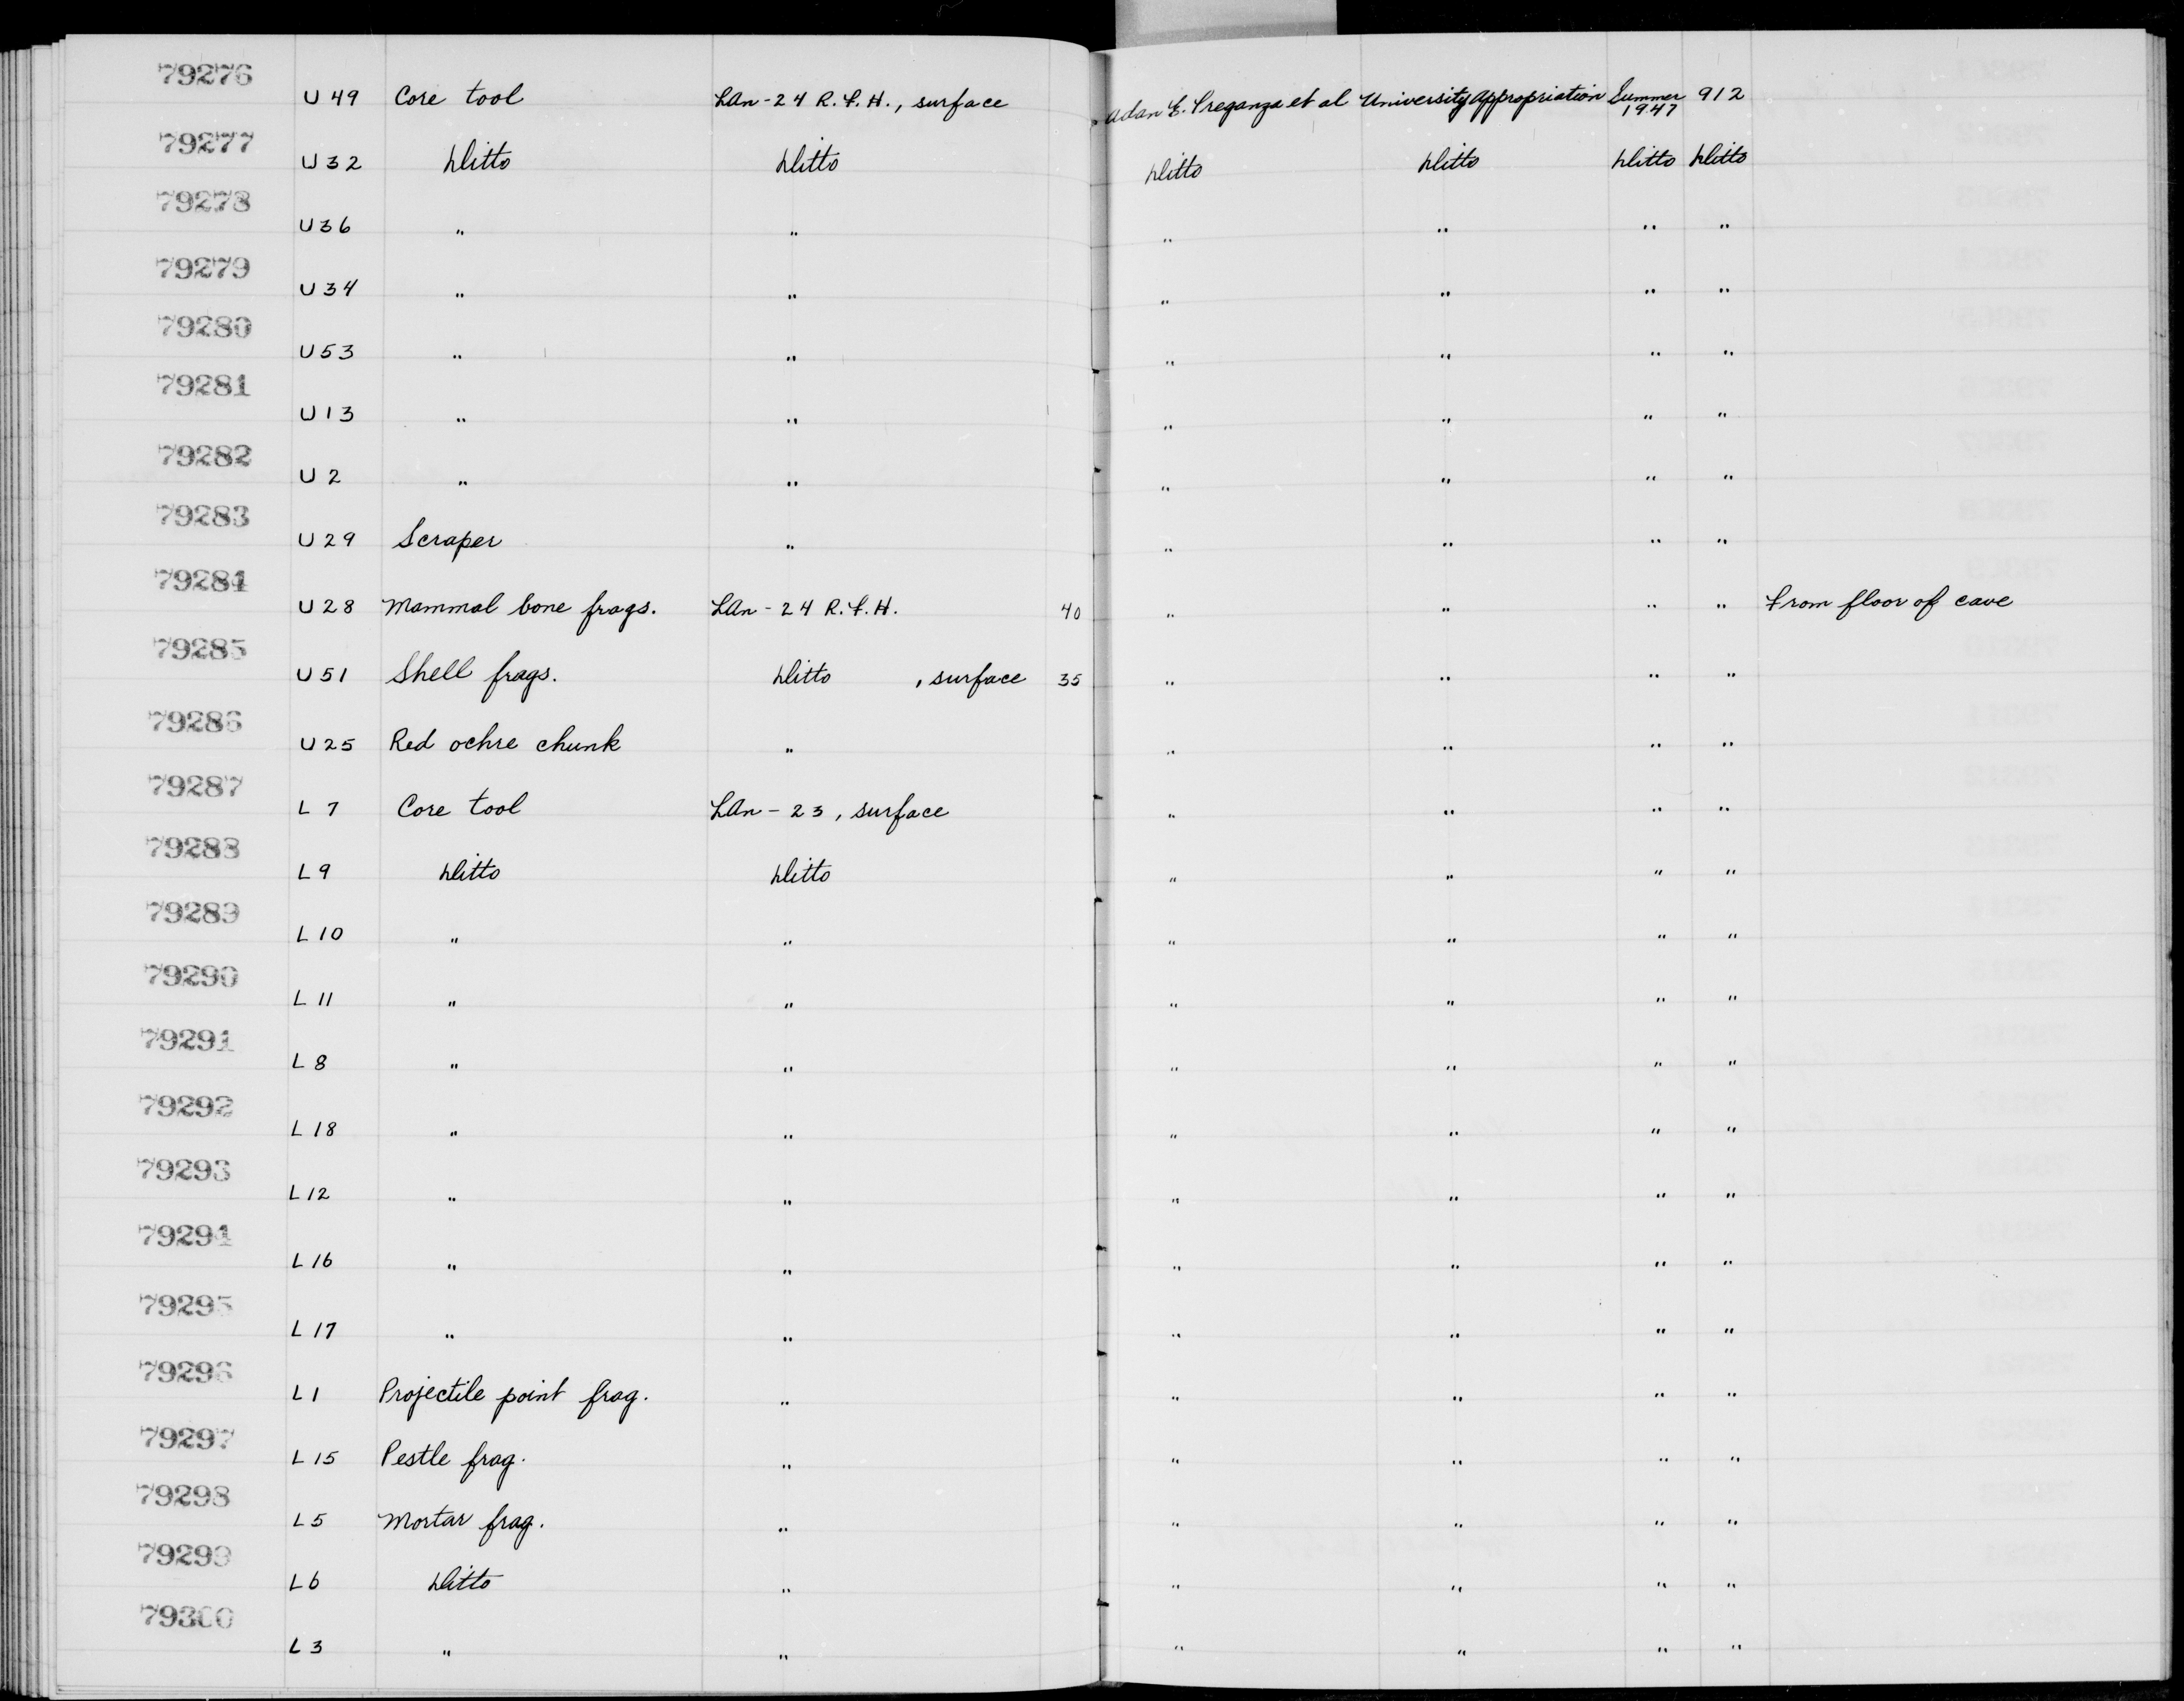 79276 U 49 Core tool LAn-24 R.F.H., surface Adan E. Treganza et al University Appropriation Summer 1947 912
79277 U 32 Ditto Ditto Ditto Ditto Ditto Ditto
79278 U 36 " " " " " "
79279 U 34 " " " " " "
79280 U 53 " " " " " "
79281 U 13 " " " " " "
79282 U 2 " " " " " "
79283 U 29 Scraper " " " " "
79284 U 28 Mammal bone frags. LAn-24 R.F.H. 40 " " " " From floor of cave
79285 U 51 Shell frags. Ditto , surface 35 " " " "
79286 U 25 Red ochre chunk " " " " "
79287 L 7 Core tool LAn-23, surface " " " "
79288 L 9 Ditto Ditto " " " "
79289 L 10 " " " " " "
79290 L 11 " " " " " "
79291 L 8 " " " " " "
79292 L 18 " " " " " "
79293 L 12 " " " " " "
79294 L 16 " " " " " "
79295 L 17 " " " " " "
79296 L 1 Projectile point frag. " " " " "
79297 L 15 Pestle frag. " " " " "
79298 L 5 Mortar frag. " " " " "
79299 L 6 Ditto " " " " "
79300 L 3 " " " " " "